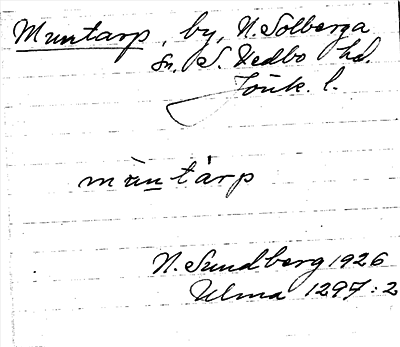 Muntarp, by, N. Solberga
sn. S. Vedbo hd.
Jönk. l.
mùntàrp
N. Sundberg 1926
Ulma 1297:2